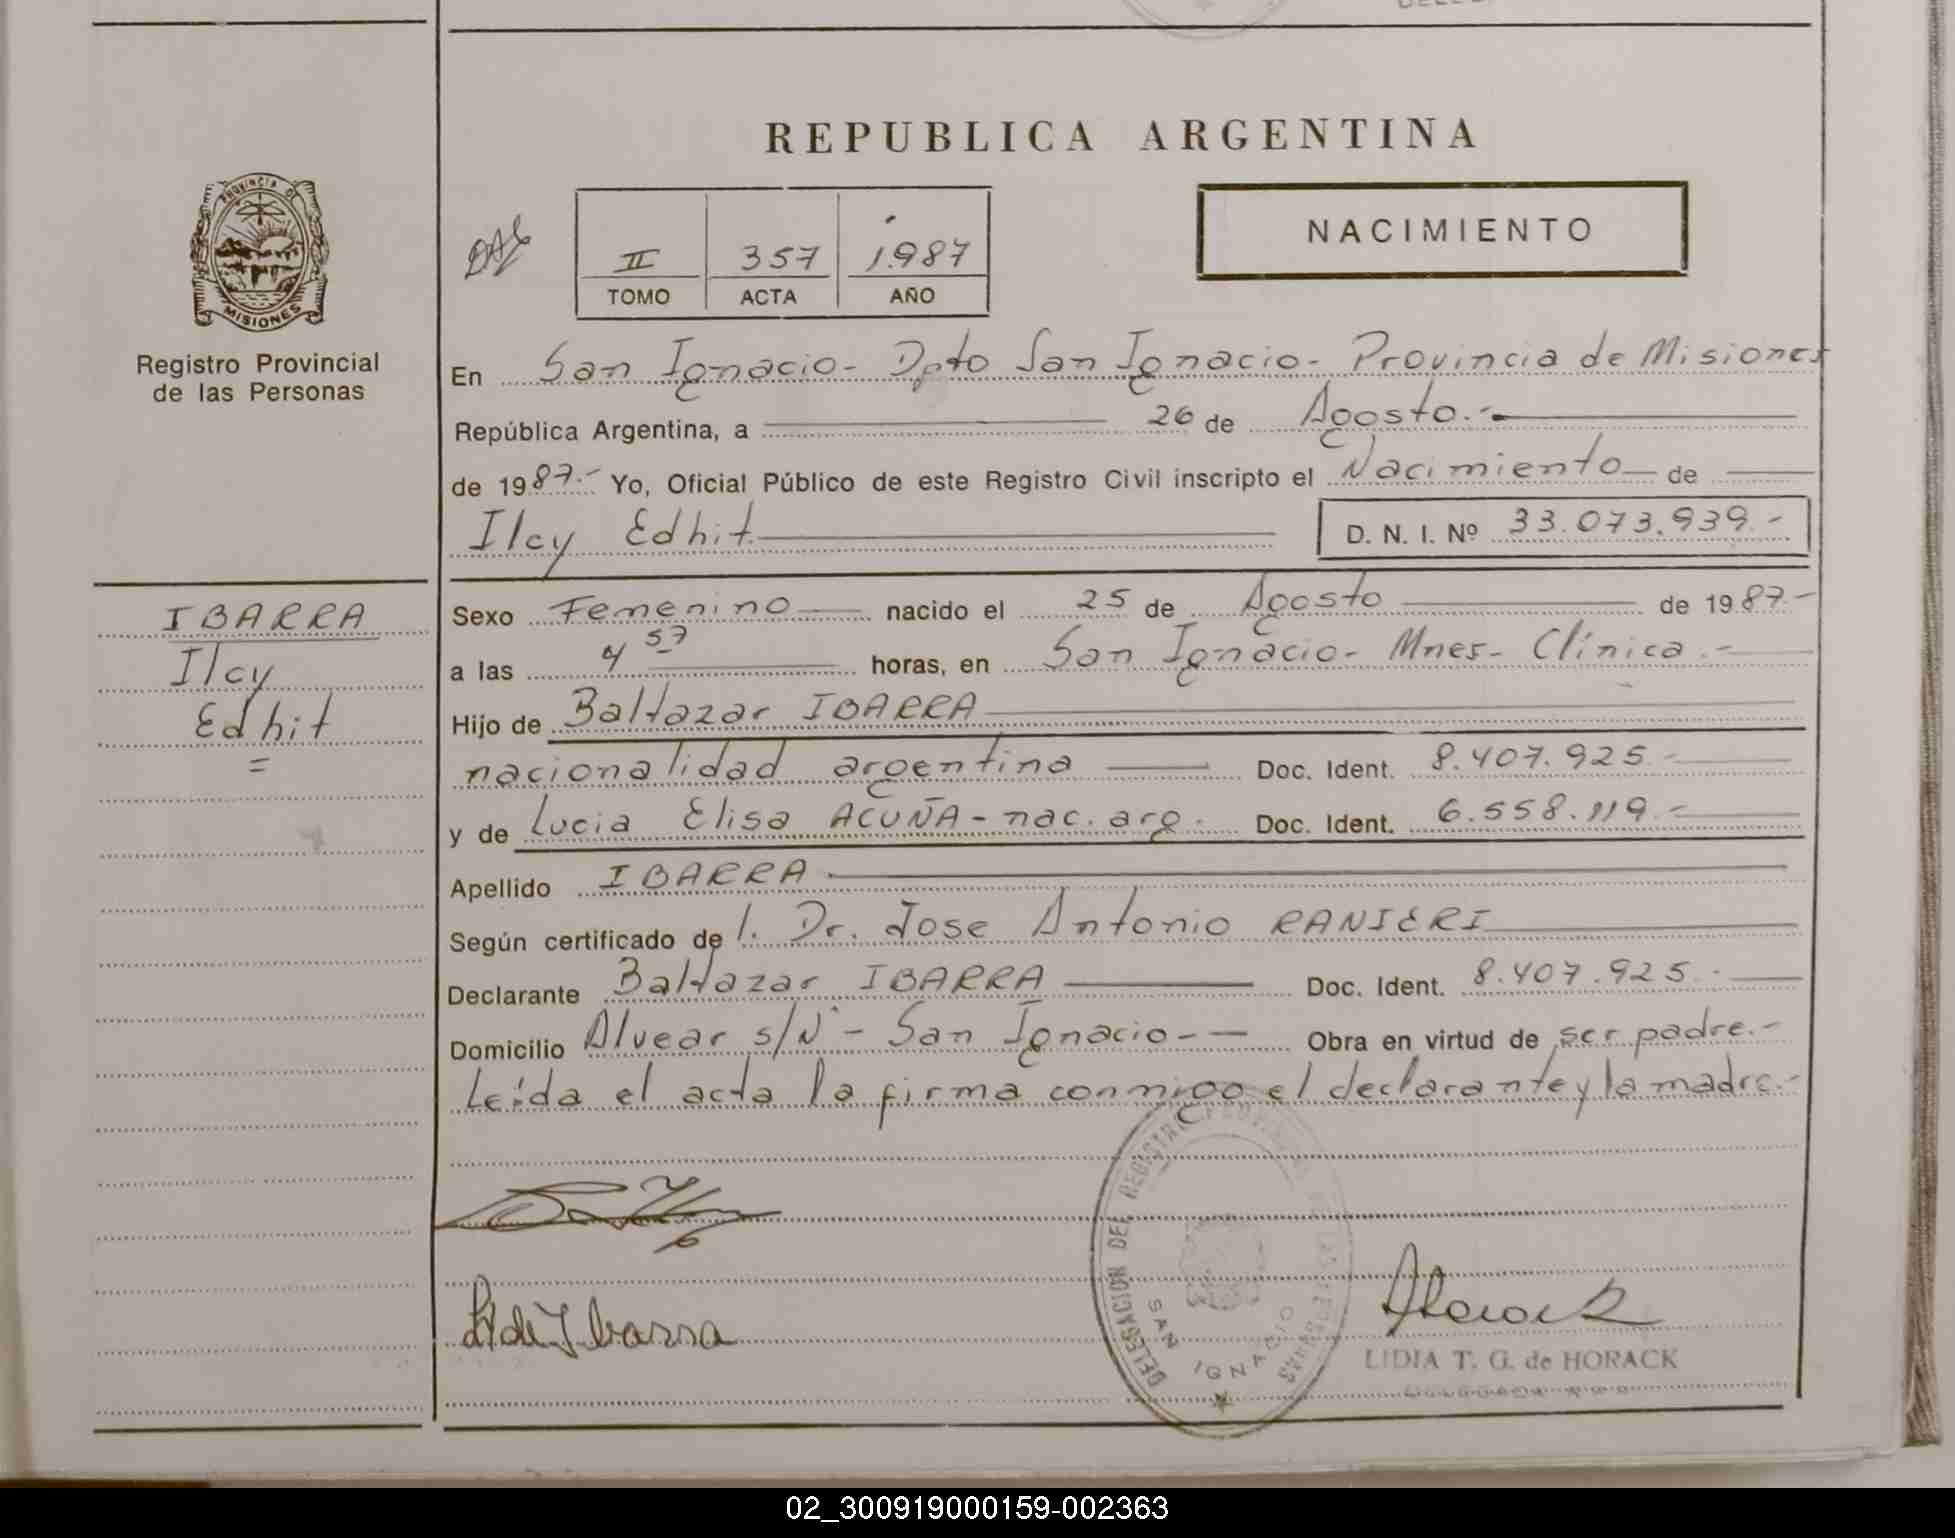 REPUBLICA ARGENTINA
PROVINCIA DE
MISIONES
Registro Provincial
de las Personas
II 357 1.987
TOMO ACTA AÑO
NACIMIENTO
En San Ignacio- Dpto San Ignacio- Provincia de Misiones
República Argentina, a 26 de Agosto.-
de 1987.- Yo, Oficial Público de este Registro Civil inscripto el Nacimiento de
Ilcy Edhit D. N. I. Nº 33.073.939.-
IBARRA
Ilcy
Edhit
=
Sexo Femenino nacido el 25 de Agosto de 1987.-
a las 4 57 horas, en San Ignacio- Mnes- Clínica.-
Hijo de Baltazar IBARRA
nacionalidad argentina Doc. Ident. 8.407.925.-
y de Lucia Elisa ACUÑA- nac. arg. Doc. Ident. 6.558.119.-
Apellido IBARRA
Según certificado de l. Dr. Jose Antonio RANIERI
Declarante Baltazar IBARRA Doc. Ident. 8.407.925.-
Domicilio Alvear s/Nº- San Ignacio-- Obra en virtud de ser padre.-
Leída el acta la firma conmigo el declarante y la madre.-
DELEGACION DEL REGISTRO PROVINCIAL DE LAS PERSONAS
SAN IGNACIO
L A de Ibarra
Horack
LIDIA T. G. de HORACK
02_300919000159-002363